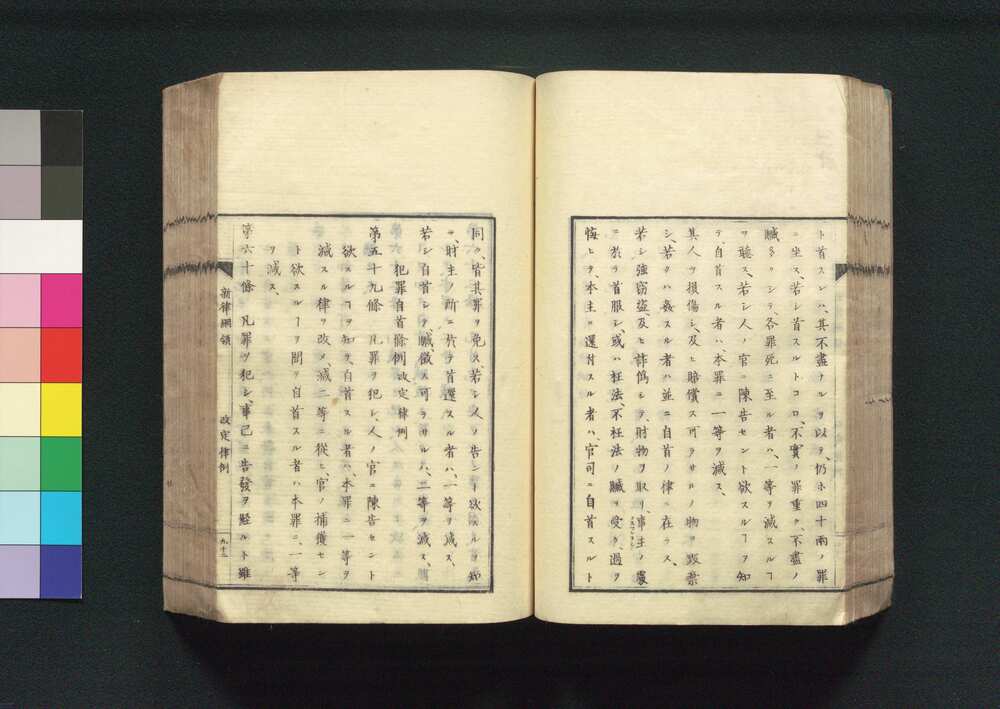 ト首スレハ、其不盡ナルヲ以テ、仍ホ四十兩ノ罪
ニ坐ス、若シ首スルトコロ、不實ノ罪重ク、不盡ノ
贓多クシテ、各罪死ニ至ル者ハ、一等ヲ減スルヿ
ヲ聽ス、若シ人ノ官ニ陳告セント欲スルヿヲ知
テ、自首スル者ハ、本罪ニ一等ヲ減ス、
其人ヲ損傷シ、及ヒ賠償ス可ラサルノ物ヲ毀棄
シ、若クハ姦スル者ハ並ニ自首ノ律ニ在ラス、
若シ強竊盜、及ヒ詐僞シテ、財物ヲ取リ、事主ノ處
ニ於テ首服シ、或ハ枉法、不枉法ノ贓ヲ受ケ、過ヲ
悔ヒテ、本主ニ還付スル者ハ、官司ニ自首スルト
同ク、皆其罪ヲ免ス若シ人ノ告シト欲スルヲ知
テ、財主ノ所ニ於テ首還スル者ハ、一等ヲ減ス、
若シ自首シテ、贓徴ス可ラサルハ、二等ヲ減ス、
犯罪自首條例 改定律例
第五十九條 凡罪ヲ犯シ、人ノ官ニ陳告セント
欲スルヿヲ知テ、自首スル者ハ、本罪ニ一等ヲ
減スル律ヲ改メ、減二等ニ從ヒ、官ノ捕獲セン
ト欲スルヿヲ聞テ自首スル者ハ本罪ニ、一等
ヲ減ス、
第六十條 凡罪ヲ犯シ、事已ニ告發ヲ經ルト雖
新律綱領 改定律例 九十三